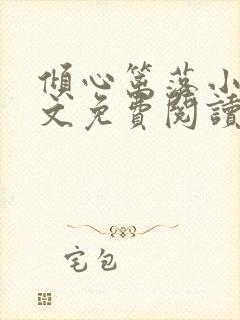 傾心篱落小
文免費閱讀
宅包